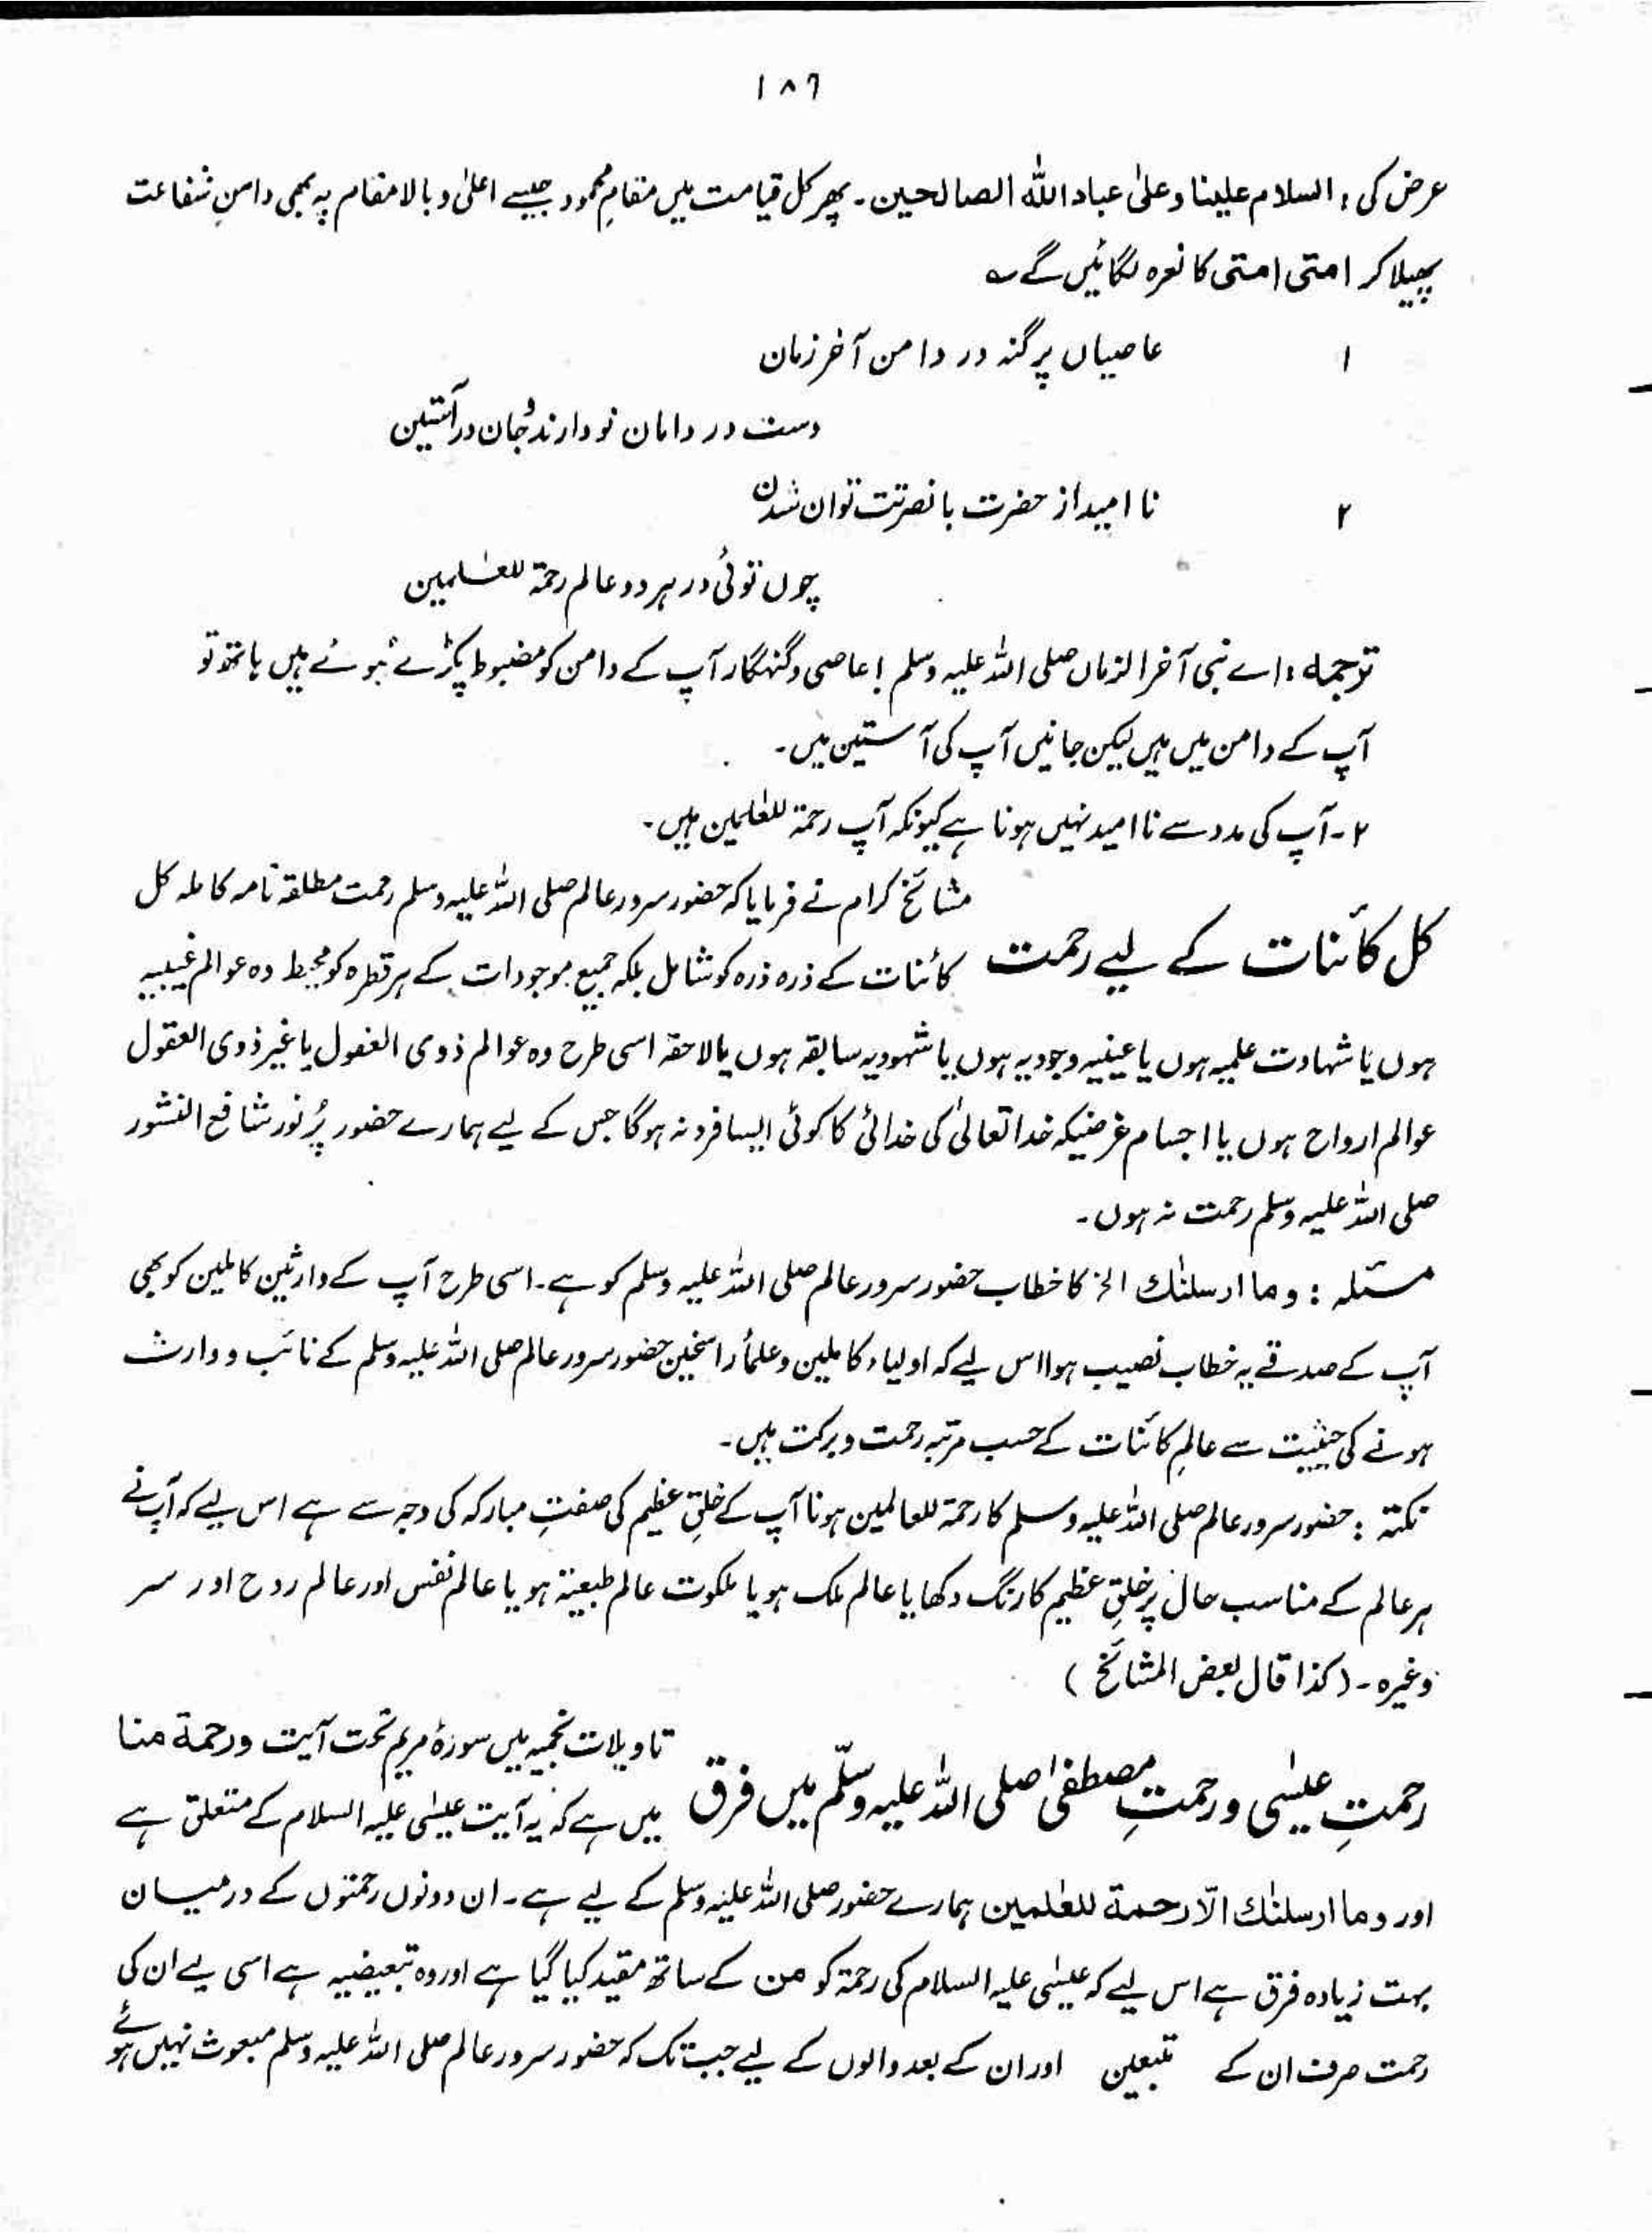 ۱۸۶
عرض کی : السلام علینا وعلیٰ عباد اللہ الصالحین ۔ پھر کل قیامت میں مقامِ محمود جیسے اعلیٰ و بالا مقام پہ بھی دامنِ شفاعت
پھیلا کر امتی امتی کا نعرہ لگائیں گے ؎
۱ عاصیاں پر گنہ در دامن آخر زمان
دست در دامان تو دارند و جان در آستین
۲ نا امید از حضرت با نصرتت توان شدن
چوں توئی در ہر دو عالم رحمۃ للعٰلمین
ترجمہ : اے نبی آخر الزماں صلی اللہ علیہ وسلم ! عاصی و گنہگار آپ کے دامن کو مضبوط پکڑے ہُوئے ہیں ہاتھ تو
آپ کے دامن میں ہیں لیکن جانیں آپ کی آستین میں ۔
۲ ۔ آپ کی مدد سے نا امید نہیں ہونا ہے کیونکہ آپ رحمۃ للعٰلمین ہیں ۔
کل کائنات کے لیے رحمت مشائخ کرام نے فرمایا کہ حضور سرور عالم صلی اللہ علیہ وسلم رحمت مطلقہ تامہ کاملہ کل
کائنات کے ذرہ ذرہ کو شامل بلکہ جمیع موجودات کے ہر قطرہ کو محیط وہ عوالم غیبیہ
ہوں یا شہادت علمیہ ہوں یا عینیہ وجودیہ ہوں یا شہودیہ سابقہ ہوں یا لاحقہ اسی طرح وہ عوالم ذوی العقول یا غیر ذوی العقول
عوالم ارواح ہوں یا اجسام غرضیکہ خدا تعالیٰ کی خدائی کا کوئی ایسا فرد نہ ہوگا جس کے لیے ہمارے حضور پُر نور شافع النشور
صلی اللہ علیہ وسلم رحمت نہ ہوں ۔
مسئلہ : وما ارسلنٰک الخ کا خطاب حضور سرور عالم صلی اللہ علیہ وسلم کو ہے ۔ اسی طرح آپ کے وارثین کاملین کو بھی
آپ کے صدقے یہ خطاب نصیب ہوا اس لیے کہ اولیاء کاملین و علمأ راسخین حضور سرور عالم صلی اللہ علیہ وسلم کے نائب و وارث
ہونے کی حیثیت سے عالمِ کائنات کے حسب مرتبہ رحمت و برکت ہیں ۔
نکتہ : حضور سرور عالم صلی اللہ علیہ وسلم کا رحمۃ للعالمین ہونا آپ کے خلقِ عظیم کی صفتِ مبارکہ کی وجہ سے ہے اس لیے کہ آپ نے
ہر عالم کے مناسب حال پر خلقِ عظیم کا رنگ دکھایا عالم ملک ہو یا ملکوت عالم طبیعۃ ہو یا عالم نفس اور عالم روح اور سر
وغیرہ ۔ (کذا قال بعض المشائخ)
رحمتِ عیسٰی و رحمتِ مصطفٰی صلی اللہ علیہ وسلّم میں فرق تاویلات نجمیہ میں سورۂ مریم تحت آیت ورحمۃ منا
میں ہے کہ یہ آیت عیسٰی علیہ السلام کے متعلق ہے
اور وما ارسلنٰک الّا رحمۃ للعٰلمین ہمارے حضور صلی اللہ علیہ وسلم کے لیے ہے ۔ ان دونوں رحمتوں کے درمیان
بہت زیادہ فرق ہے اس لیے کہ عیسٰی علیہ السلام کی رحمۃ کو من کے ساتھ مقید کیا گیا ہے اور وہ تبعیضیہ ہے اسی لیے ان کی
رحمت صرف ان کے متبعین اور ان کے بعد والوں کے لیے جب تک کہ حضور سرور عالم صلی اللہ علیہ وسلم مبعوث نہیں ہوئے